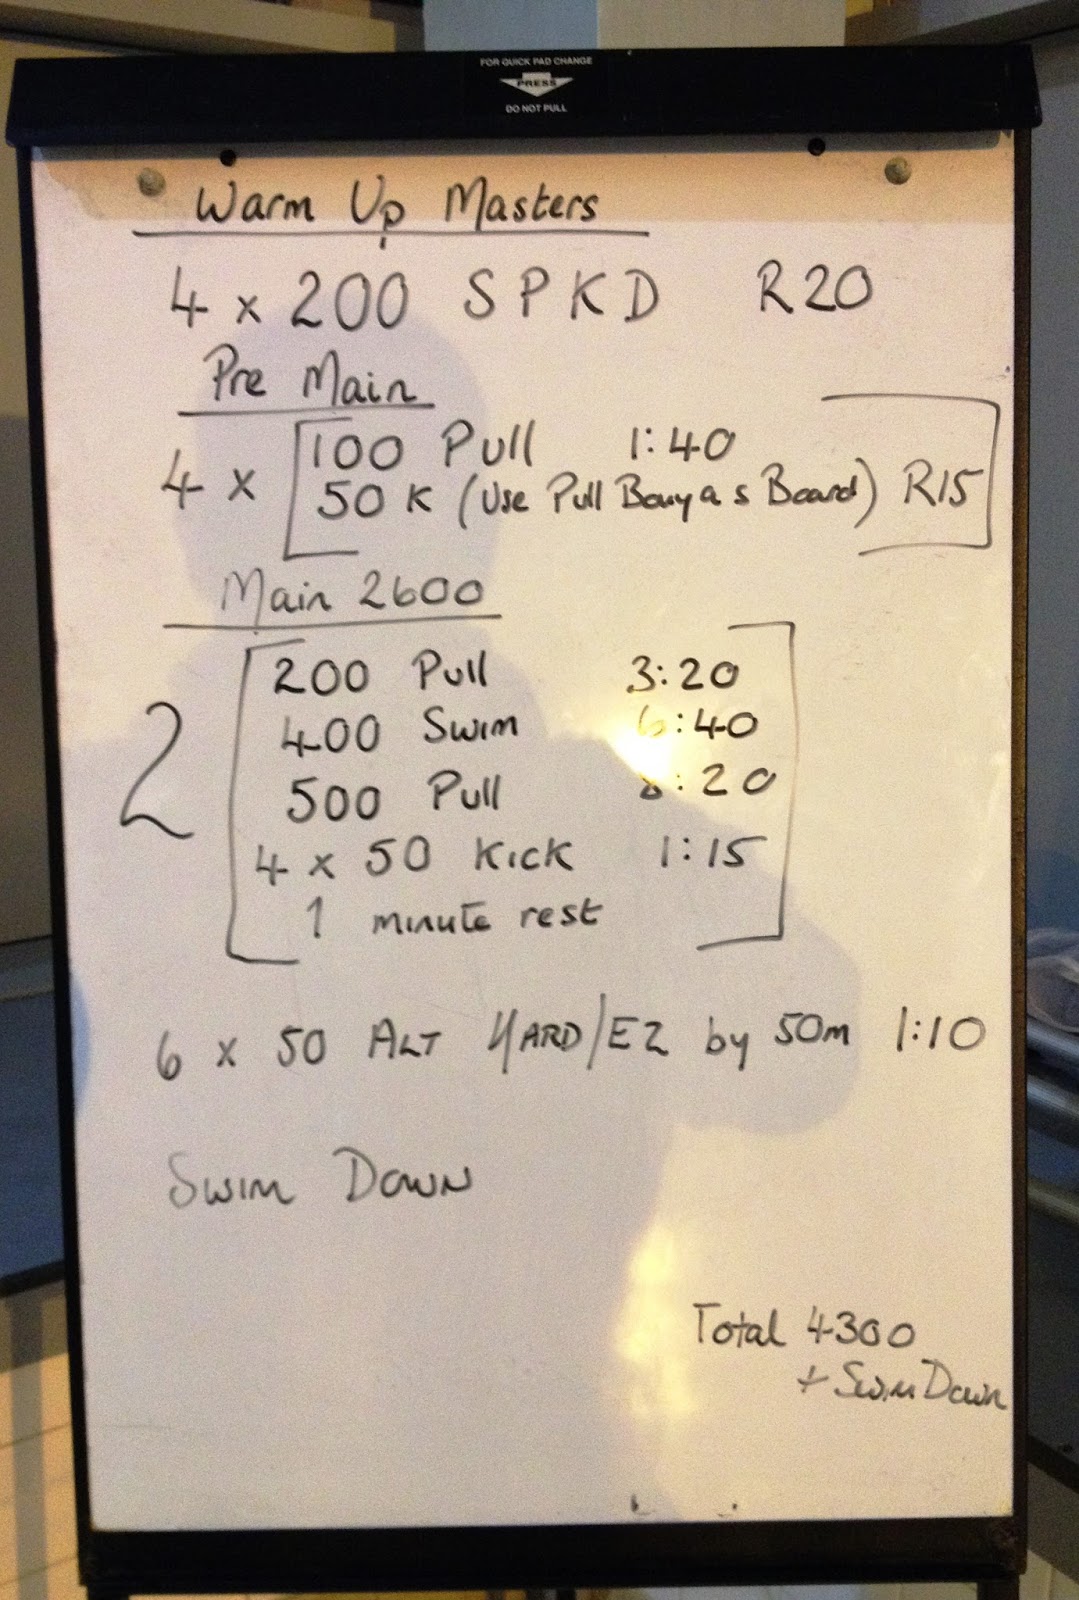 FOR QUICK PAD CHANGE
PRESS
DO NOT PULL
Warm Up Masters
4 x 200 S P K D R20
Pre Main
4 x
100 Pull 1:40
50 K (Use Pull Bouy as Board) R15
Main 2600
2
200 Pull 3:20
400 Swim 6:40
500 Pull 8:20
4 x 50 Kick 1:15
1 minute rest
6 x 50 ALT HARD/EZ by 50m 1:10
Swim Down
Total 4300
+ Swim Down